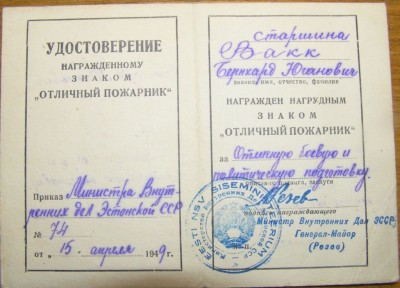 УДОСТОВЕРЕНИЕ
НАГРАЖДЕННОМУ
ЗНАКОМ
„ОТЛИЧНЫЙ ПОЖАРНИК“
Приказ Министра Внут-
ренних дел Эстонской ССР
№ 74
от „15 апреля 1949г.
старшина
Вакк
Бернхард Юганович
звание, имя, отчество, фамилия
НАГРАЖДЕН НАГРУДНЫМ
ЗНАКОМ
„ОТЛИЧНЫЙ ПОЖАРНИК“
за Отличную боевую и
политическую подготовку.
заслуги
награждающего
Министр Внутренних Дел ЭССР
Генерал-Майор
(Резев)
EESTI NSV SISEMINISTEERIUM